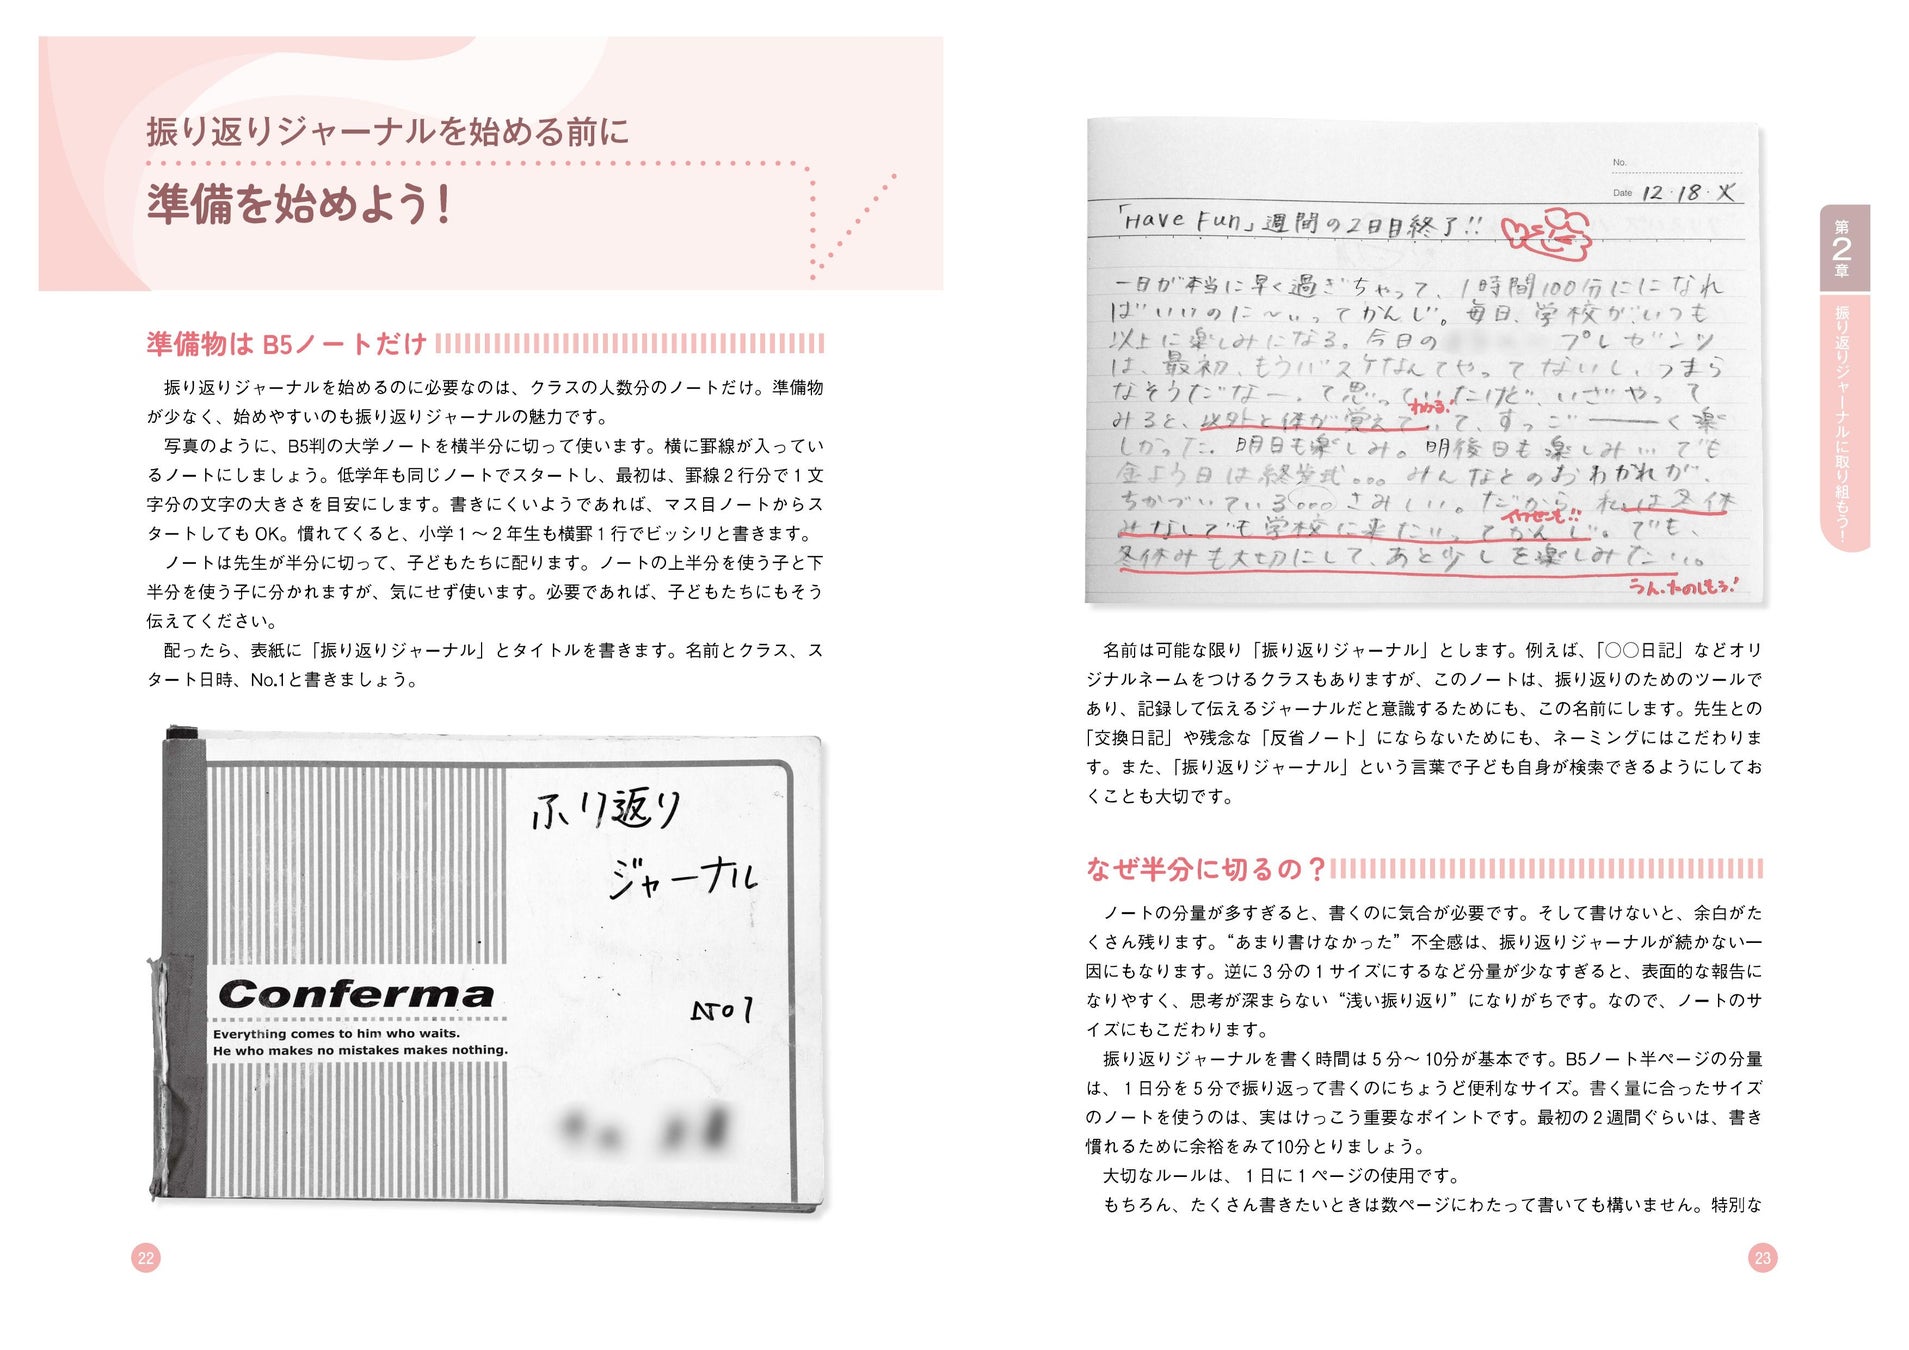 振り返りジャーナルを始める前に
準備を始めよう！
準備物は B5ノートだけ
振り返りジャーナルを始めるのに必要なのは、クラスの人数分のノートだけ。準備物
が少なく、始めやすいのも振り返りジャーナルの魅力です。
写真のように、B5判の大学ノートを横半分に切って使います。横に罫線が入ってい
るノートにしましょう。低学年も同じノートでスタートし、最初は、罫線２行分で１文
字分の文字の大きさを目安にします。書きにくいようであれば、マス目ノートからス
タートしても OK。慣れてくると、小学１～２年生も横罫１行でビッシリと書きます。
ノートは先生が半分に切って、子どもたちに配ります。ノートの上半分を使う子と下
半分を使う子に分かれますが、気にせず使います。必要であれば、子どもたちにもそう
伝えてください。
配ったら、表紙に「振り返りジャーナル」とタイトルを書きます。名前とクラス、ス
タート日時、No.1と書きましょう。
ふり返り
ジャーナル
Conferma
No1
Everything comes to him who waits.
He who makes no mistakes makes nothing.
22
No.
Date 12・18・火
「Have Fun」週間の2日目終了!!
一日が本当に早く過ぎちゃって、1時間100分にになれ
ばいいのに〜ぃってかんじ。毎日、学校が、いつも
以上に楽しみになる。今日の プレゼンツ
は、最初、もうバスケなんてやってないし、つまら
なそうだなー、て思っていたけど、いざやって
わかる!
みると、以外と体が覚えていて、すっごーーーく楽
しかった。明日も楽しみ。明後日も楽しみ…でも
金よう日は終業式。。。みんなとのおわかれが、
ちかづいている。。。さみしい。だから、私は冬休
イワセンも!!
みなしでも学校に来たいってかんじ。でも、
冬休みも大切にして、あと少しを楽しみたい。
うん、たのしもう!
第2章
振り返りジャーナルに取り組もう！
名前は可能な限り「振り返りジャーナル」とします。例えば、「〇〇日記」などオリ
ジナルネームをつけるクラスもありますが、このノートは、振り返りのためのツールで
あり、記録して伝えるジャーナルだと意識するためにも、この名前にします。先生との
「交換日記」や残念な「反省ノート」にならないためにも、ネーミングにはこだわりま
す。また、「振り返りジャーナル」という言葉で子ども自身が検索できるようにしてお
くことも大切です。
なぜ半分に切るの？
ノートの分量が多すぎると、書くのに気合が必要です。そして書けないと、余白がた
くさん残ります。“あまり書けなかった”不全感は、振り返りジャーナルが続かない一
因にもなります。逆に３分の１サイズにするなど分量が少なすぎると、表面的な報告に
なりやすく、思考が深まらない“浅い振り返り”になりがちです。なので、ノートのサ
イズにもこだわります。
振り返りジャーナルを書く時間は５分～10分が基本です。B5ノート半ページの分量
は、１日分を５分で振り返って書くのにちょうど便利なサイズ。書く量に合ったサイズ
のノートを使うのは、実はけっこう重要なポイントです。最初の２週間ぐらいは、書き
慣れるために余裕をみて10分とりましょう。
大切なルールは、１日に１ページの使用です。
もちろん、たくさん書きたいときは数ページにわたって書いても構いません。特別な
23